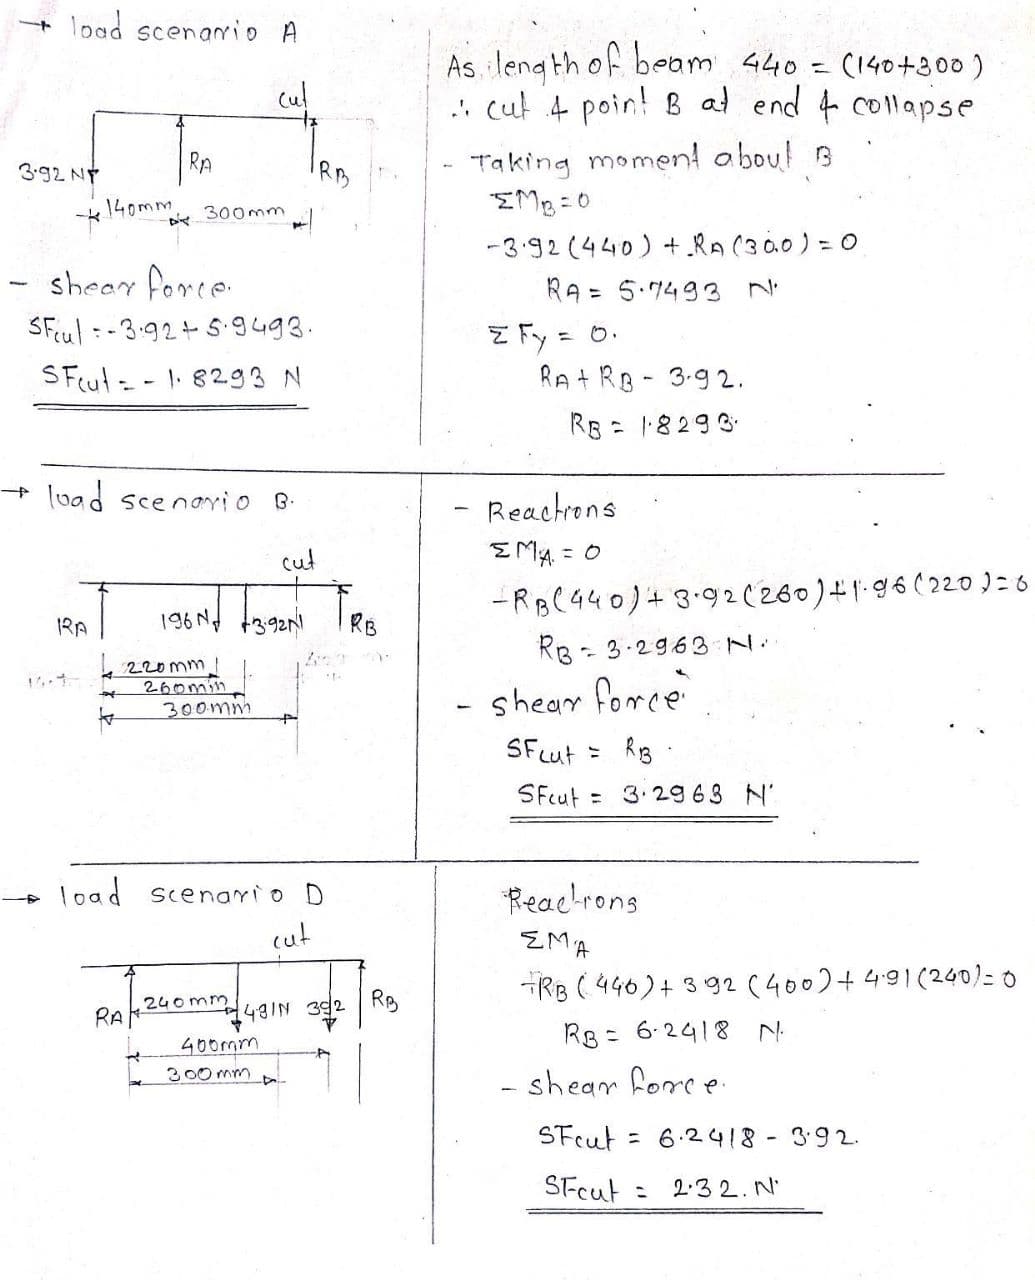 → load scenario A
cut
3.92 N
RA
RB
140mm
300mm
- shear force.
SFcut = -3.92 + 5.9493.
SFcut = - 1.8293 N
As, length of beam 440 = (140+300)
∴ cut & point B at end & collapse
- Taking moment about B
ΣMB = 0
-3.92 (440) + RA (300) = 0
RA = 5.7493 N
ΣFy = 0.
RA + RB - 3.92.
RB = 1.8293.
→ load scenario B.
cut
RA
196N
3.92N
RB
220mm
260mm
300mm
- Reactions
ΣMA = 0
-RB(440) + 3.92(260) + 1.96(220) = 0
RB = 3.2963 N.
- shear force
SFcut = RB
SFcut = 3.2963 N
→ load scenario D
cut
RA
240mm
491N
392
RB
400mm
300mm
Reactions
ΣMA
-RB (440) + 392 (400) + 4.91(240) = 0
RB = 6.2418 N.
- shear force.
SFcut = 6.2418 - 3.92.
SFcut = 2.32. N